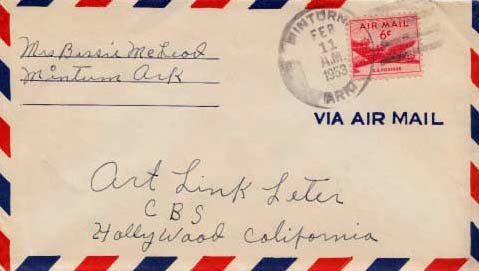 Mrs Bessie McLeod
Minturn Ark
MINTURN
FEB
11
A.M.
1953
ARK.
AIR MAIL
6¢
U.S. POSTAGE
VIA AIR MAIL
Art Link Leter
CBS
Hollywood California